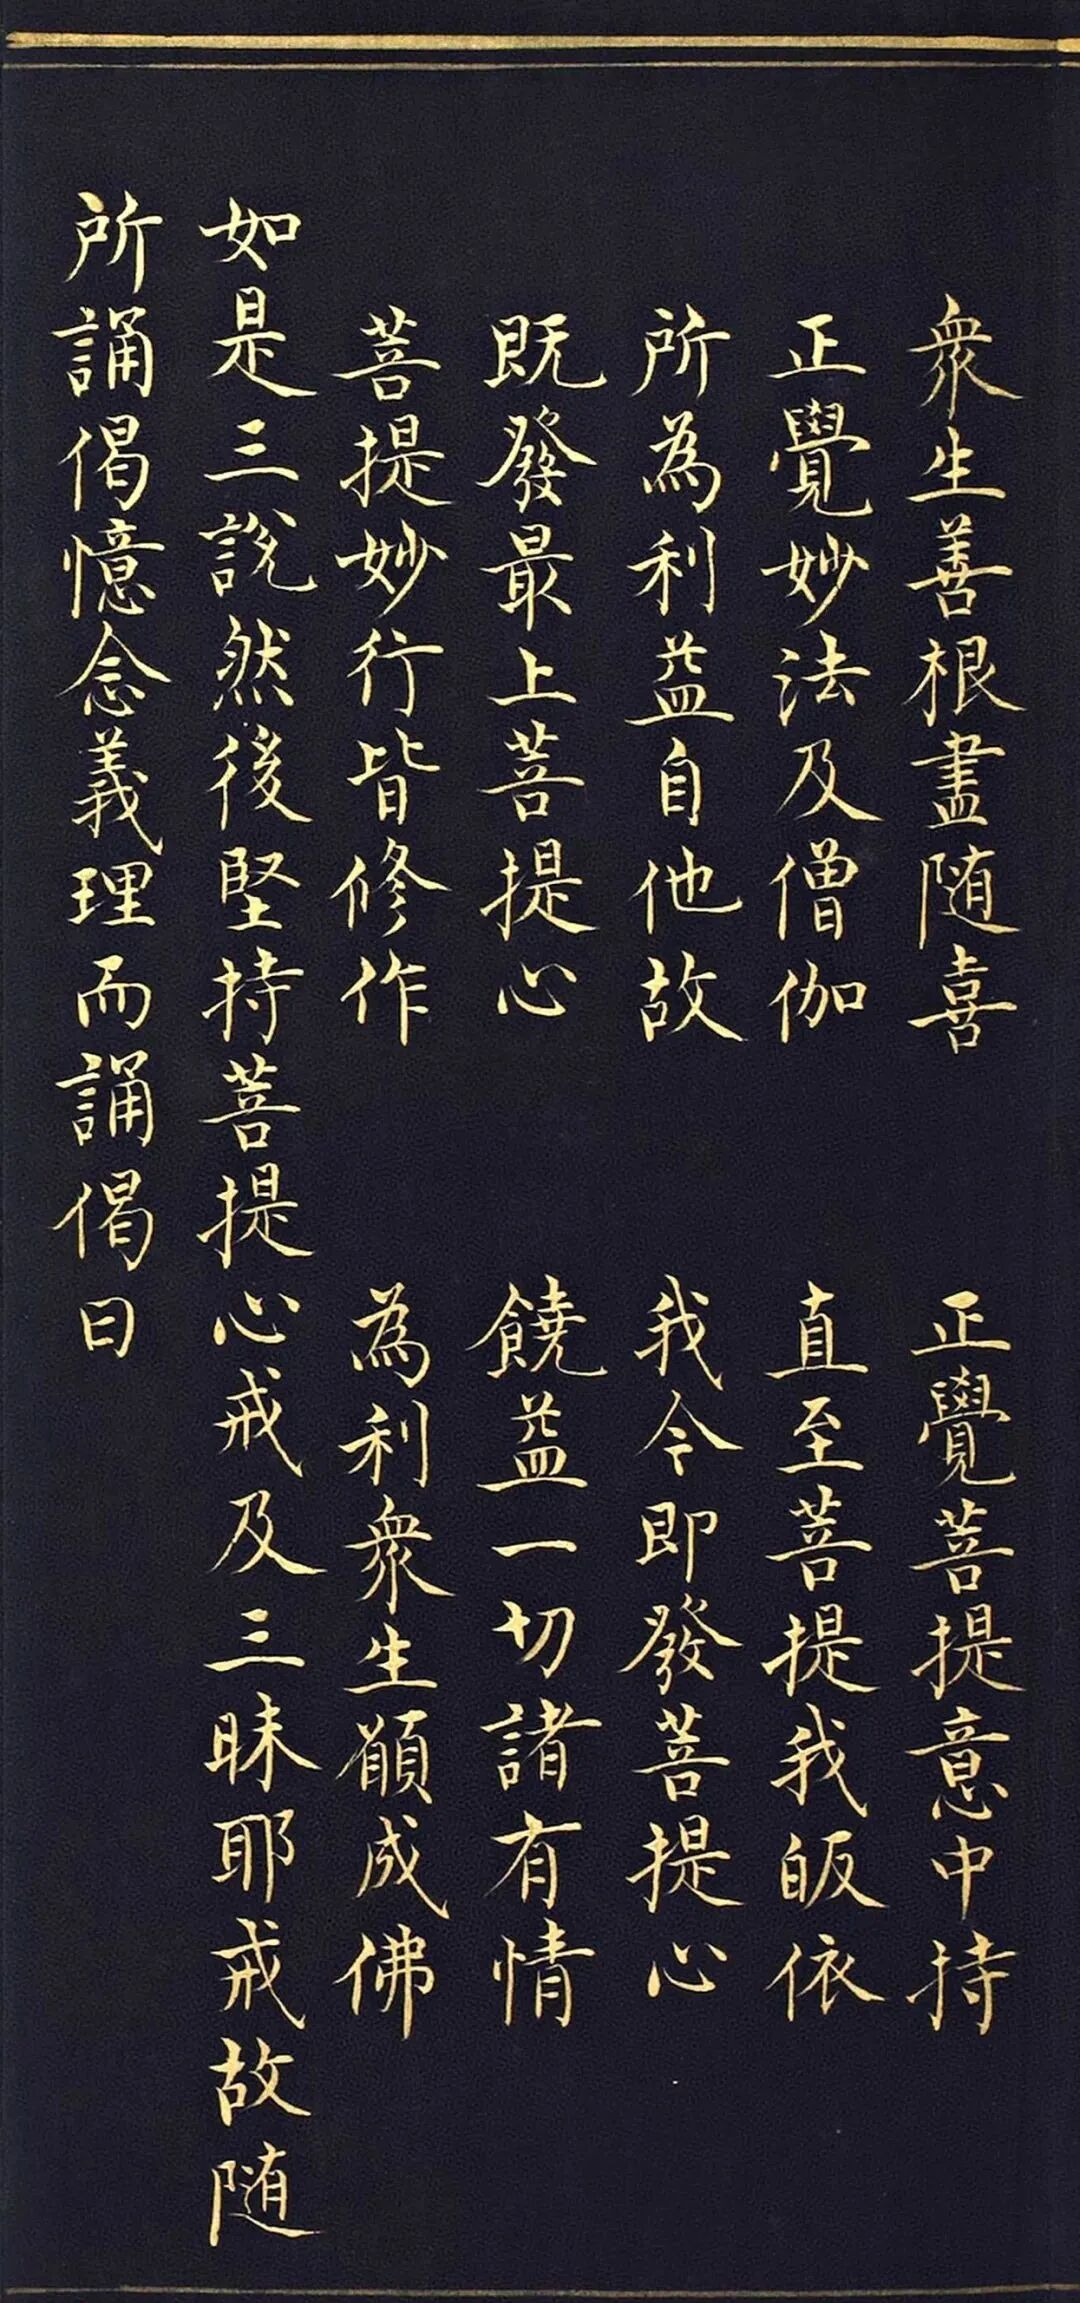 衆生善根盡随喜　正覺菩提意中持
正覺妙法及僧伽　直至菩提我皈依
所為利益自他故　我今即發菩提心
既發最上菩提心　饒益一切諸有情
菩提妙行皆修作　為利衆生願成佛
如是三說然後堅持菩提心戒及三昧耶戒故随
所誦偈憶念義理而誦偈曰